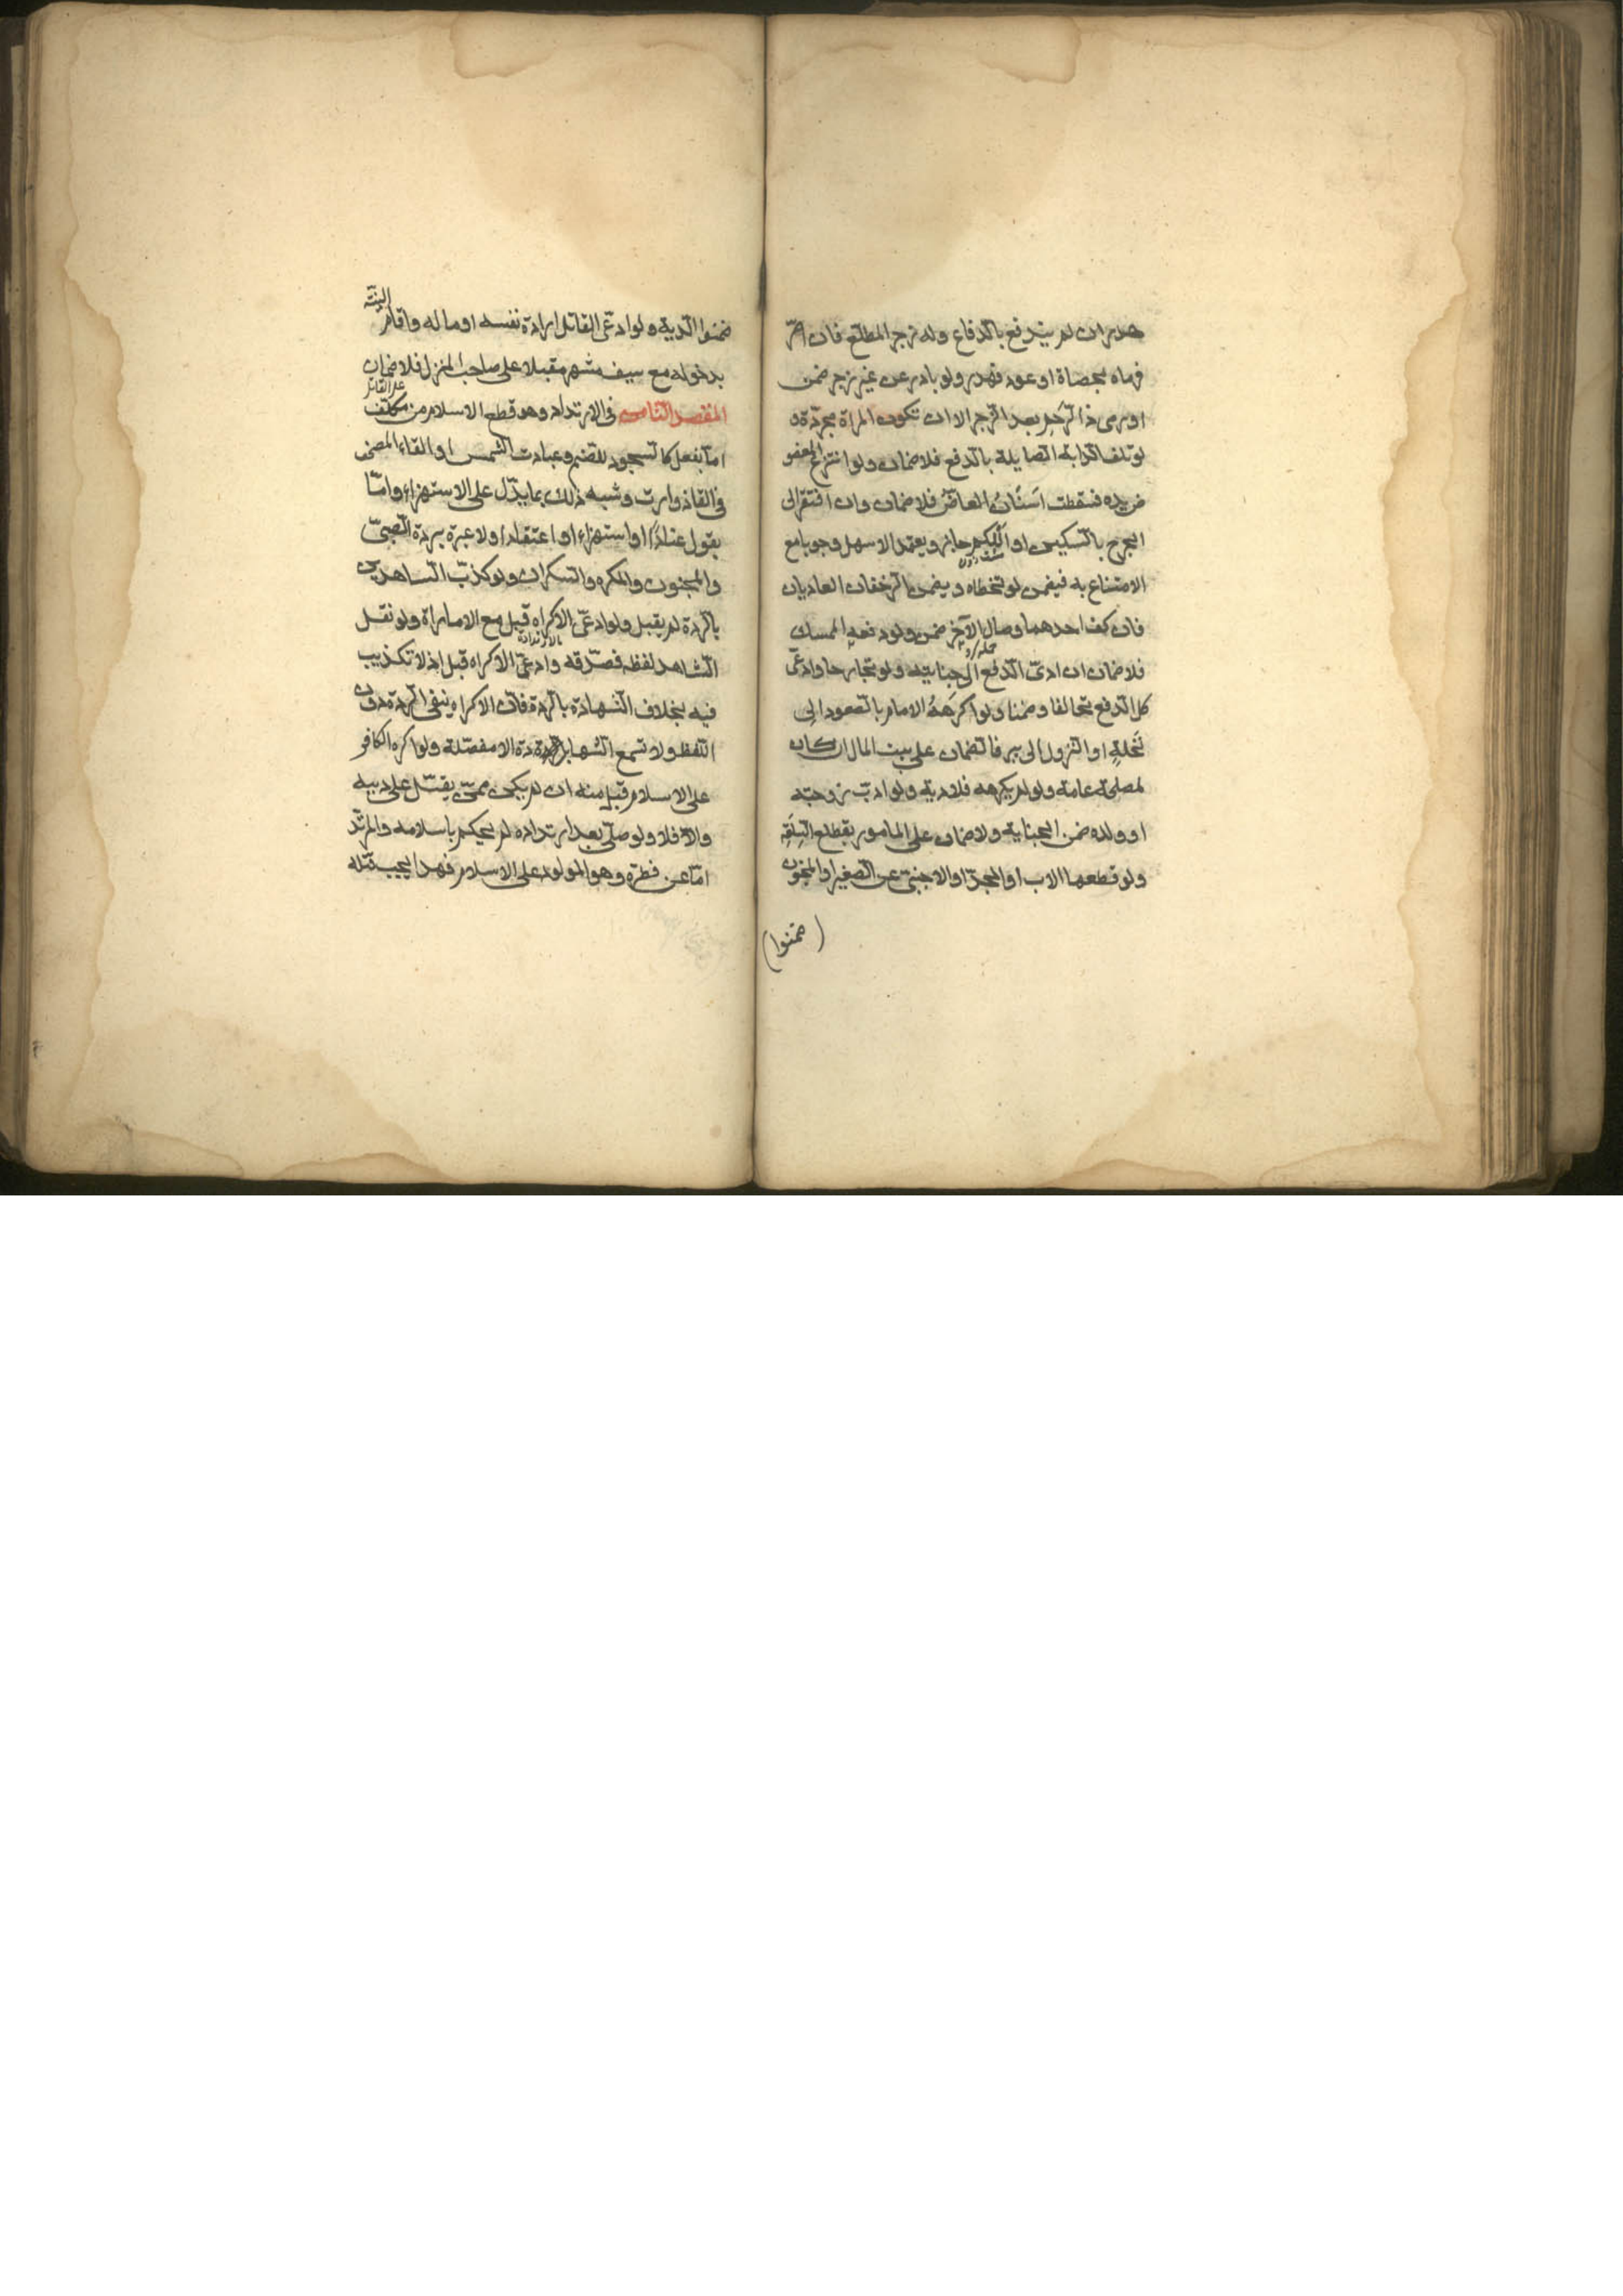 هدر ان لم يندفع بالدفاع وله زجر المطلع فان اصر
فرماه بحصاة او عود فهدر ولو بادر من غير زجر ضمن
او رمى ذا الرحم بعد الزجر الا ان تكون المراة مجردة و
لو تلف الدابة الصايلة بالدفع فلا ضمان ولو انتزع المعضو
ض يده فسقطت اسنان العاض فلا ضمان وان افتقر الى
الجرح بالسكين او اللكم جاز ويعتمد الاسهل وجوبا مع
الامتناع به فيضمن لو تخطاه ويضمن الزحفان العاديان
فان كف احدهما وصال الآخر ضمن ولو دفعه الممسك
فلا ضمان ان ادى الدفع الى جنايته ولو تجارحا وادعى
كل الدفع تحالفا وضمنا ولو اكرهه الامام بالصعود الى
نخلة او النزول الى بير فالضمان على بيت المال ان كان
لمصلحة عامة ولو لم يكرهه فلا دية ولو ادب زوجته
او ولده ضمن الجناية ولا ضمان على المامور بقطع السلعة
ولو قطعها الاب او الجد او الاجنبي عن الصغير او المجنون
(ضمنوا)
ضمنوا الدية ولو ادعى القاتل ارادة نفسه او ماله واقام البينة
بدخوله مع سيف مشهر مقبلا على صاحب المنزل فلا ضمان
على القاتل
المقصد الثامن في الارتداد وهو قطع الاسلام من مكلف
اما بفعل كالسجود للصنم وعبادت الشمس او القاء المصحف
في القاذورات وشبه ذلك بما يدل على الاستهزاء واما
بقول عنادًا او استهزاء او اعتقادا ولا عبرة بردة الصبي
والمجنون والمكره والسكران ولو كذب الشاهدين
بالردة لم يقبل ولو ادعى الاكراه قبل مع الامارة ولو نقل
بالارتداد
الشاهد لفظه فصدقه وادعى الاكراه قبل اذ لا تكذيب
فيه بخلاف الشهادة بالردة فان الاكراه ينفى الردة دون
اللفظ ولا تسمع الشهادة الا مفصلة ولو اكره الكافر
على الاسلام قبل منه ان لم يكن ممن يقتل على دينه
والا فلا ولو صلى بعد ارتداده لم يحكم باسلامه والمرتد
اما عن فطرة وهو المولود على الاسلام فهذا يجب قتله